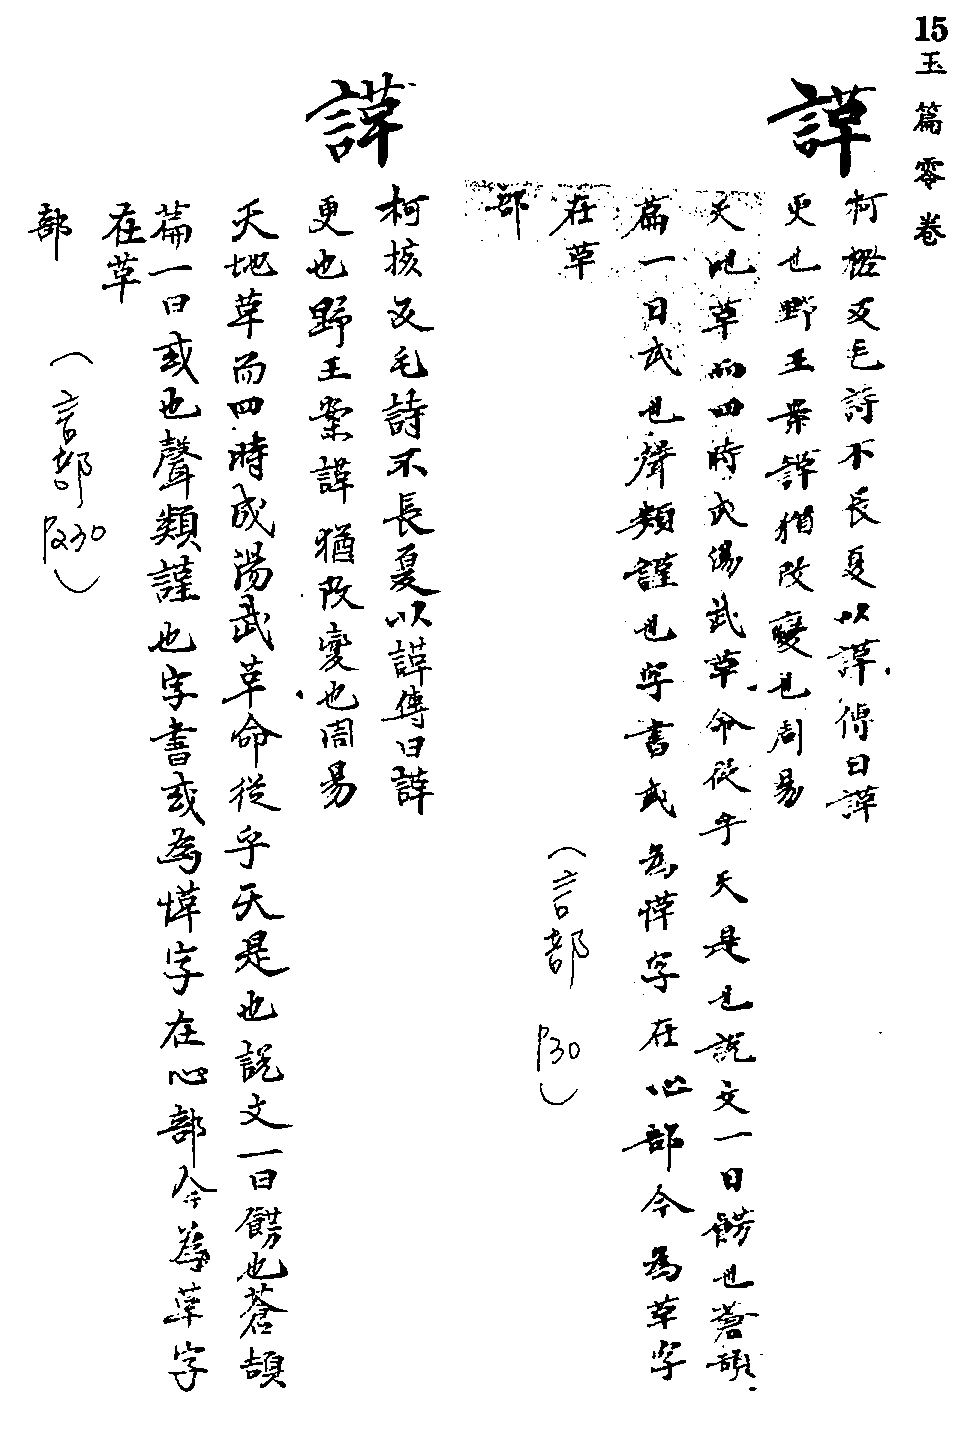 15玉篇零卷
諽
柯橙反毛詩不長夏以諽傳曰諽
更也野王案諽猶改變也周易
天地革而四時成湯武革命從乎天是也說文一曰飭也蒼頡
篇一曰或也聲類謹也字書或為愅字在心部今為革字
在革
部
(言部 P30)
諽
柯核反毛詩不長夏以諽傳曰諽
更也野王案諽猶改變也周易
天地革而四時成湯武革命從乎天是也說文一曰飭也蒼頡
篇一曰或也聲類謹也字書或為愅字在心部今為革字
在革
部
(言部 P230)